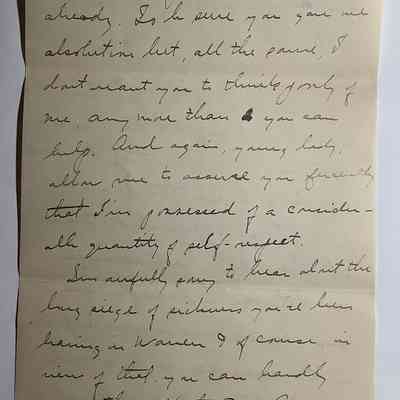 already. To be sure you gave me
absolution but, all the same, I
don't want you to think poorly of
me, any more than you can
help. And again, young lady,
allow me to assure you fervently
that I'm possessed of a consider-
able quantity of self-respect.
I'm awfully sorry to hear about the
long siege of sickness you've been
having in Warren & of course, in
view of that, you can hardly